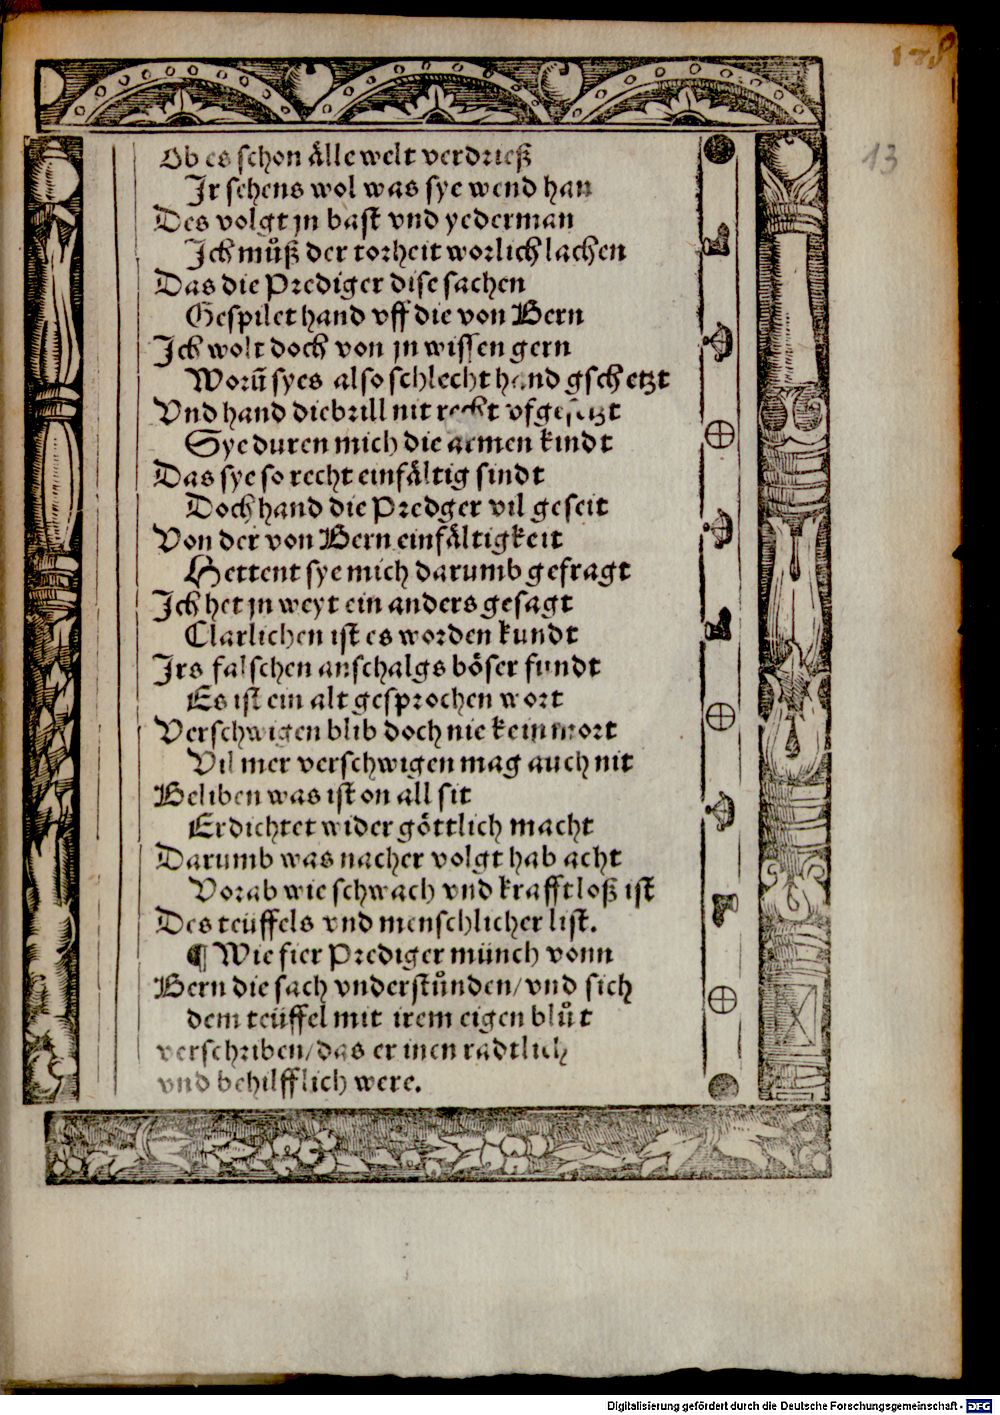 178
13
Ob es schon älle welt verdrieß
Ir sehens wol was sye wend han
Des volgt jn bast vnd yederman
Ich můß der torheit worlich lachen
Das die Prediger dise sachen
Gespilet hand vff die von Bern
Ich wolt doch von jn wissen gern
Worū sy es also schlecht hand gschetzt
Vnd hand die brill nit recht vfgesetzt
Sye duren mich die armen kindt
Das sye so recht einfältig sindt
Doch hand die Predger vil geseit
Von der von Bern einfältigkeit
Hettent sye mich darumb gefragt
Ich het jn weyt ein anders gesagt
Clarlichen ist es worden kundt
Irs falschen anschalgs böser fundt
Es ist ein alt gesprochen wort
Verschwigen blib doch nie kein mort
Vil mer verschwigen mag auch nit
Beliben was ist on all sit
Erdichtet wider göttlich macht
Darumb was nacher volgt hab acht
Vorab wie schwach vnd krafftloß ist
Des teüffels vnd menschlicher list.
¶ Wie fier Prediger münch vonn
Bern die sach vnderstůnden/vnd sich
dem teüffel mit irem eigen blůt
verschriben/das er inen radtlich
vnd behilfflich were.
Digitalisierung gefördert durch die Deutsche Forschungsgemeinschaft - DFG